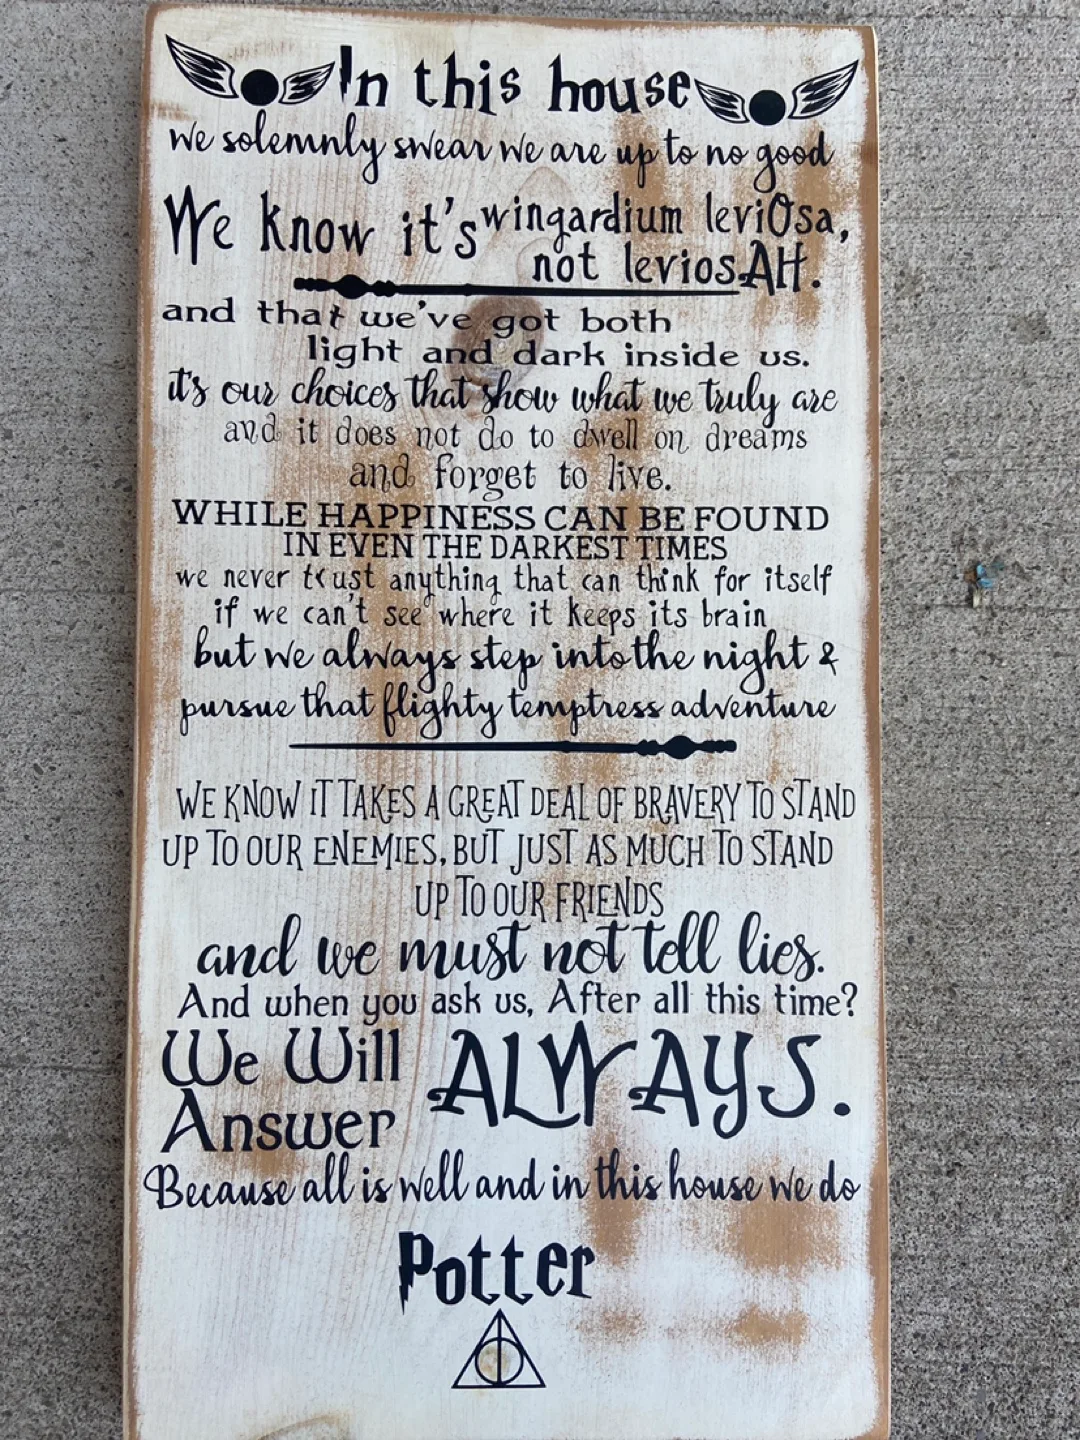 In this house
we solemnly swear we are up to no good
We know it's wingardium leviOsa,
not leviosAH.
and that we've got both
light and dark inside us.
it's our choices that show what we truly are
and it does not do to dwell on dreams
and forget to live.
WHILE HAPPINESS CAN BE FOUND
IN EVEN THE DARKEST TIMES
we never trust anything that can think for itself
if we can't see where it keeps its brain
but we always step into the night &
pursue that flighty temptress adventure
WE KNOW IT TAKES A GREAT DEAL OF BRAVERY TO STAND
UP TO OUR ENEMIES, BUT JUST AS MUCH TO STAND
UP TO OUR FRIENDS
and we must not tell lies.
And when you ask us, After all this time?
We Will
Answer
ALWAYS.
Because all is well and in this house we do
Potter